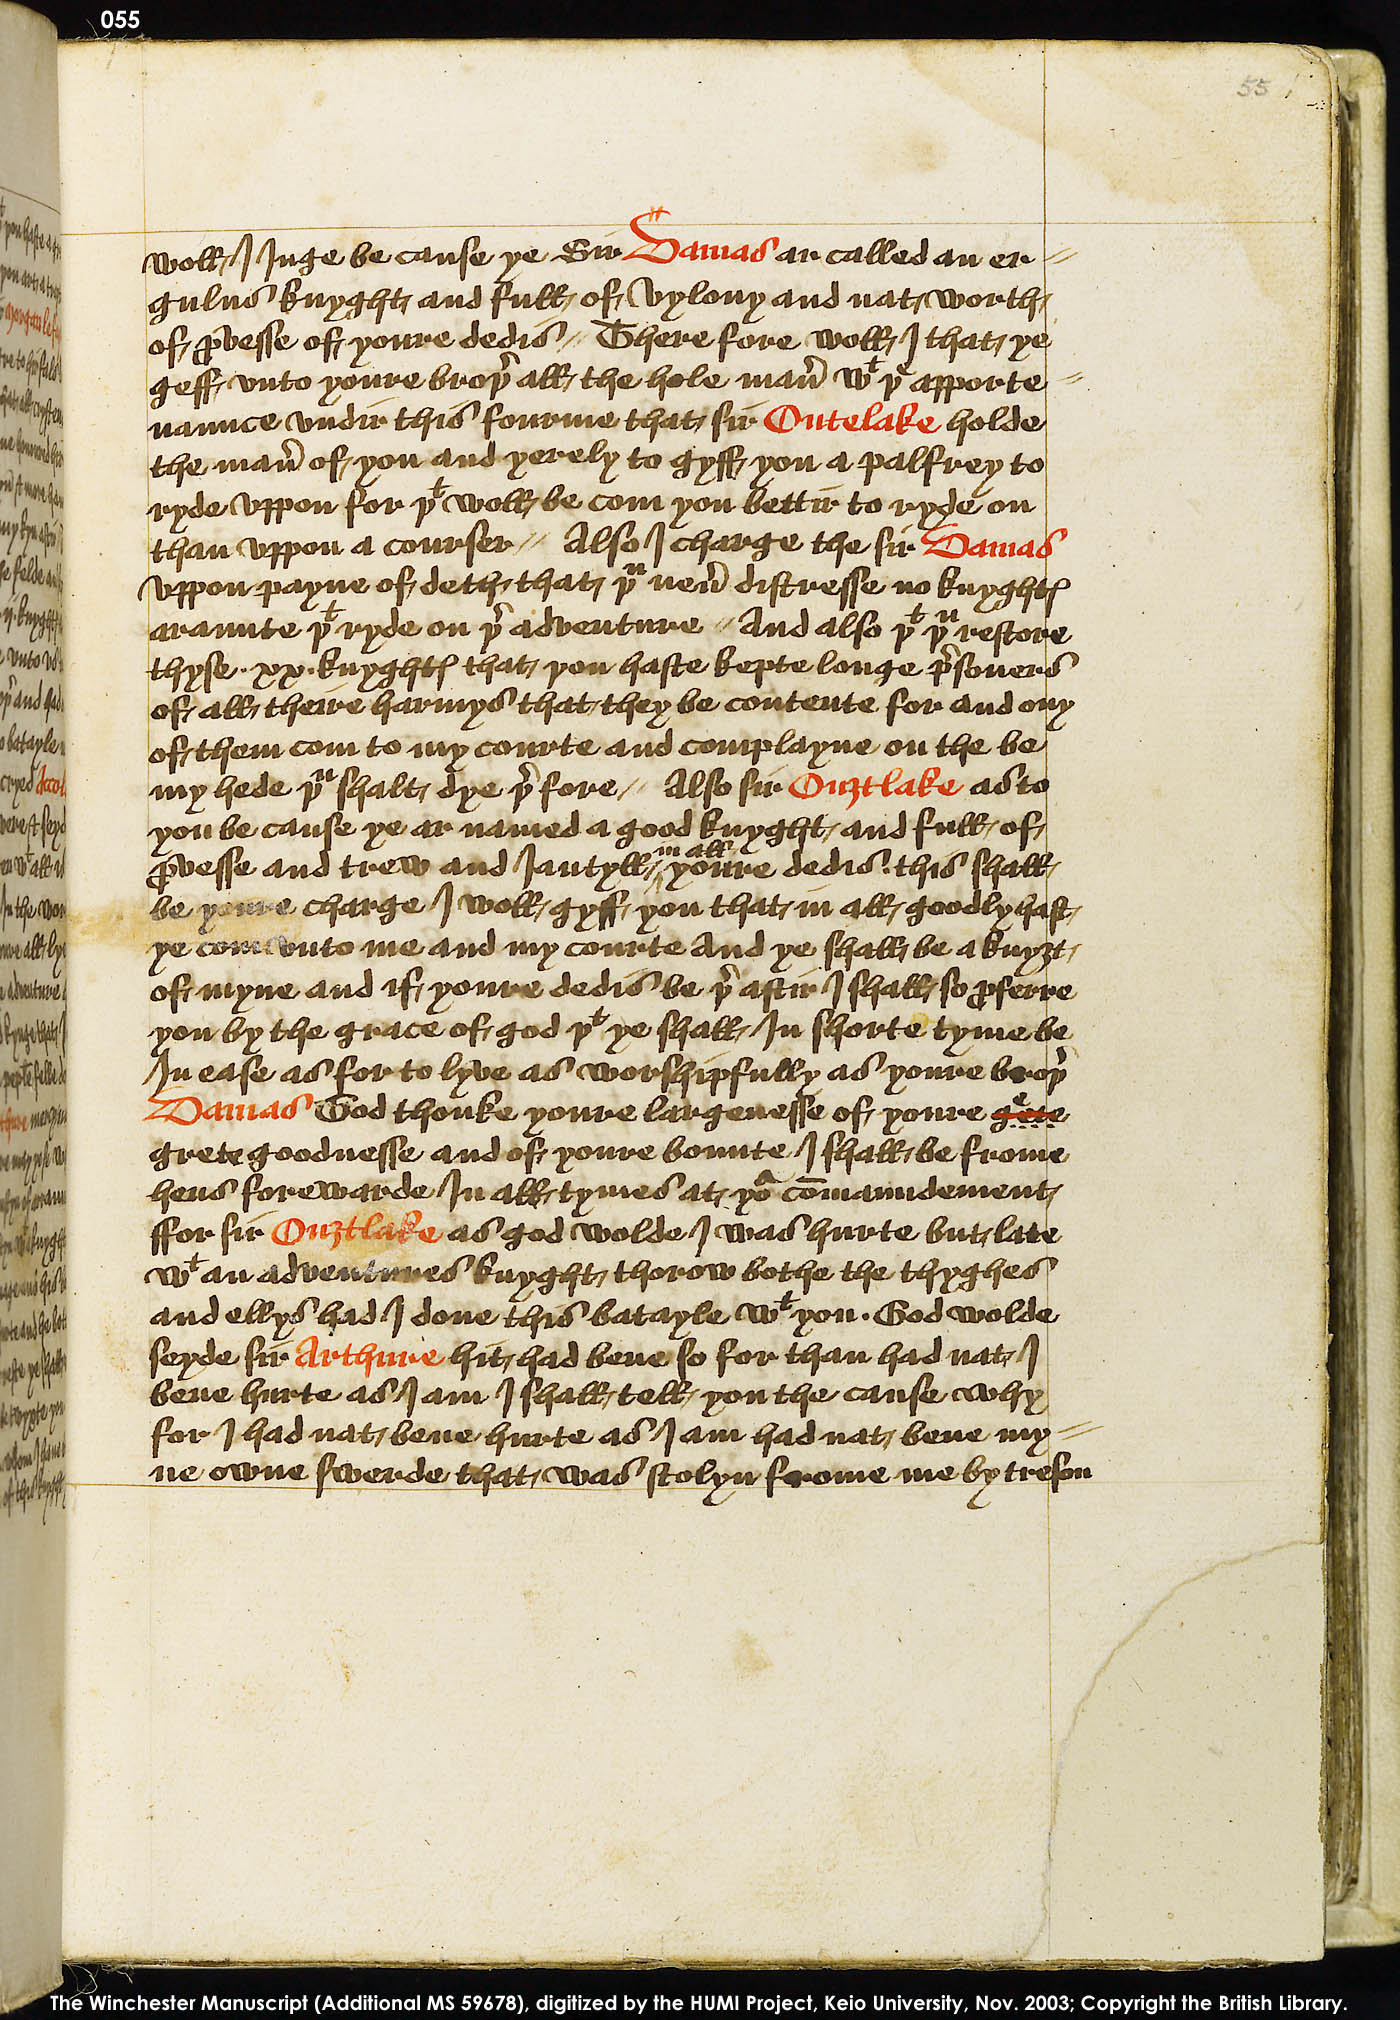 055
55
woll I Iuge be cause ye Sir Damas ar called an or=
gulus knyght and full of vylony and nat worth
of ꝓvesse of youre dedis // There fore woll I that ye
geff vnto youre broþ̉ all the hole man̉ wᵗ þᵉ apporte=
naunce vndir this fourme that sir Outelake holde
the man̉ of you and yerely to gyff you a palfrey to
ryde vppon for þᵗ woll be com you bettir to ryde on
than vppon a courser // Also I charge the sir Damas
vppon payne of deth that þᵘ nev̉ distresse no knyghtꝭ
araunte þᵗ ryde on þ̉ adventure // And also þᵗ þᵘ restore
thyse .xx. knyghtꝭ that you haste kepte longe p̉soners
of all theire harmys that they be contente for and ony
of them com to my courte and complayne on the be
my hede þᵘ shalt dye þ̉ fore // Also sir Ouȝtlake as to
you be cause ye ar named a good knyght and full of
ꝓvesse and trew and Iantyll in all youre dedis . this shall
be youre charge I woll gyff you that in all goodly hast
ye com vnto me and my courte And ye shall be a knyȝt
of myne and if youre dedis be þ̉ aftir I shall so ꝓferre
you by the grace of god þᵗ ye shall In shorte tyme be
In ease as for to lyve as worshipfully as youre broþ̉
Damas God thonke youre largenesse of youre gete
grete goodnesse and of youre bounte I shall be frome
hens forewarde In all tymes at yoᵃ cōmaundement
ffor sir Ouȝtlake as god wolde I was hurte but late
wᵗ an adventures knyght thorow bothe the thyghes
and ellys had I done this batayle wᵗ you . God wolde
seyde sir Arthure hit had bene so for than had nat I
bene hurte as I am I shall tell you the cause why
for I had nat bene hurte as I am had nat bene my=
ne owne swerde that was stolyn frome me by treson
The Winchester Manuscript (Additional MS 59678), digitized by the HUMI Project, Keio University, Nov. 2003; Copyright the British Library.